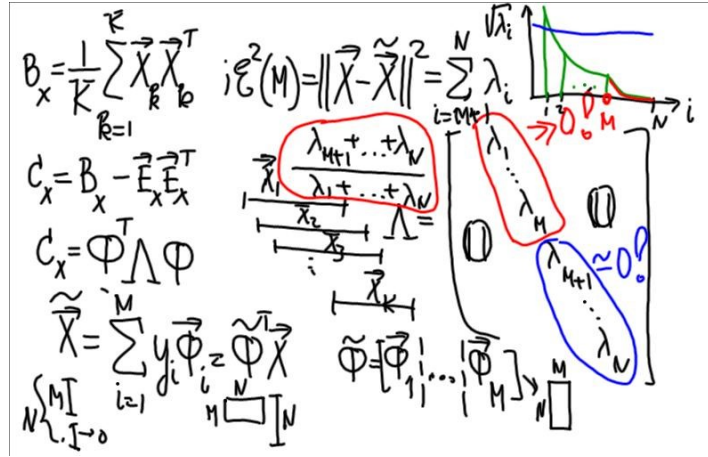 B_x = 1/K Σ_{k=1}^{K} X⃗_k X⃗_k^T ; ε²(M) = ||X⃗ - X̃⃗||² = Σ_{i=M+1}^{N} λ_i
√λ_i
1 2 ... M N i
→ 0!
C_x = B_x - E⃗_x E⃗_x^T
λ_{M+1} + ... + λ_N / λ_1 + ... + λ_N
X⃗_1
X_2
X_3
X⃗_K
C_x = Φ^T Λ Φ
Λ = [ λ_1 ... λ_M λ_{M+1} ... λ_N ]
0 0
≃ 0!
X̃⃗ = Σ_{i=1}^{M} y_i Φ⃗_i = Φ̃^T X⃗
Φ̃ = [Φ⃗_1 ¦ ... ¦ Φ⃗_M]
N { M I
I → 0
M N N
N M